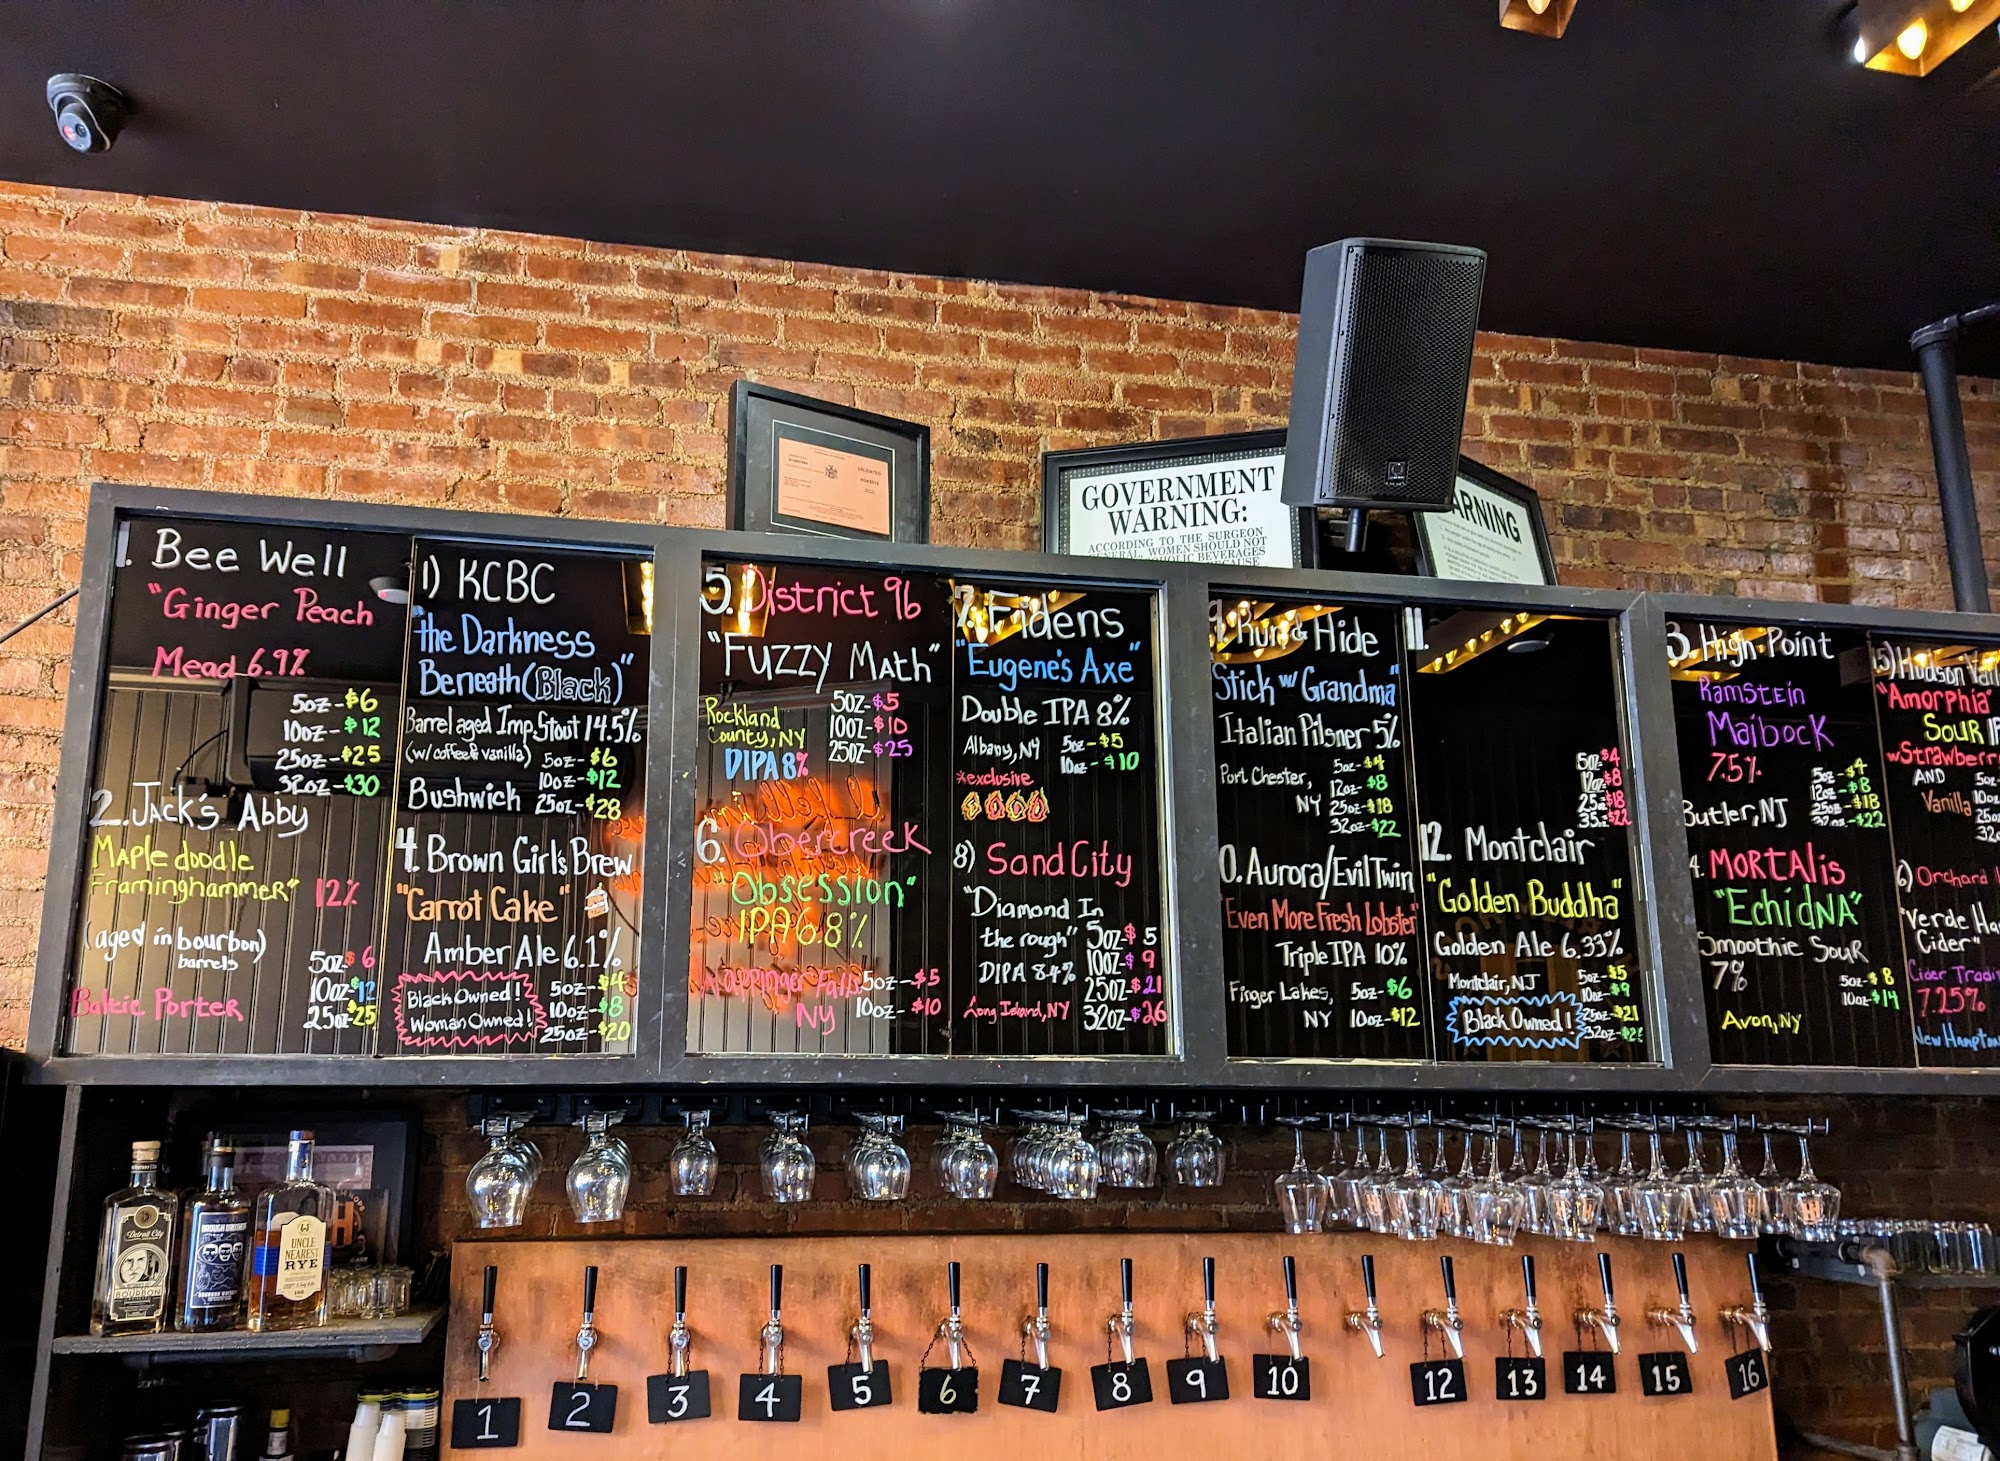 1. Bee Well
"Ginger Peach
Mead 6.9%
5oz-$6
10oz-$12
25oz-$25
32oz-$30
2. Jack's Abby
Maple doodle
Framinghammer"
12%
(aged in bourbon)
barrels
Baltic Porter
5oz-$6
10oz-$12
25oz-$25
1) KCBC
"the Darkness
Beneath (Black)"
Barrel aged Imp. Stout 14.5%
(w/ coffee & vanilla)
Bushwick
5oz-$6
10oz-$12
25oz-$28
4. Brown Girl's Brew
"Carrot Cake"
Amber Ale 6.1%
Black Owned!
Woman Owned!
5oz-$4
10oz-$8
25oz-$20
5. District 96
"Fuzzy Math"
Rockland
County, NY
DIPA 8%
5oz-$5
10oz-$10
25oz-$25
6. Obercreek
"Obsession"
IPA 6.8%
Wappinger Falls,
NY
5oz-$5
10oz-$10
7. Fidens
"Eugene's Axe"
Double IPA 8%
Albany, NY
5oz-$5
10oz-$10
*exclusive
8) Sand City
"Diamond In
the rough"
DIPA 8.4%
Long Island, NY
5oz-$5
10oz-$9
25oz-$21
32oz-$26
9. Run & Hide
Stick w/ Grandma"
Italian Pilsner 5%
Port Chester,
NY
5oz-$4
12oz-$8
25oz-$18
32oz-$22
0. Aurora/Evil Twin
"Even More Fresh Lobster"
Triple IPA 10%
Finger Lakes,
NY
5oz-$6
10oz-$12
11.
5oz-$4
12oz-$8
25oz-$18
35oz-$22
12. Montclair
"Golden Buddha"
Golden Ale 6.33%
Montclair, NJ
Black Owned!
5oz-$5
10oz-$9
25oz-$21
3. High Point
Ramstein
Maibock
7.5%
Butler, NJ
5oz-$4
12oz-$8
25oz-$18
32oz-$22
4. Mortalis
"Echidna"
Smoothie Sour
7%
Avon, NY
5oz-$8
10oz-$14
5) Hudson Vall
"Amorphia"
Sour IP
w/Strawberry
AND
Vanilla
6) Orchard
"Verde Ha
Cider"
Cider Tradi
7.25%
New Hampton
VALIDATED
GOVERNMENT
WARNING:
ACCORDING TO THE SURGEON
GENERAL, WOMEN SHOULD NOT
BEVERAGES
ARNING
Detroit City
BOURBON
BROUGH BROTHERS
BOURBON WHISKEY
UNCLE
NEAREST
RYE
100
1
2
3
4
5
6
7
8
9
10
12
13
14
15
16